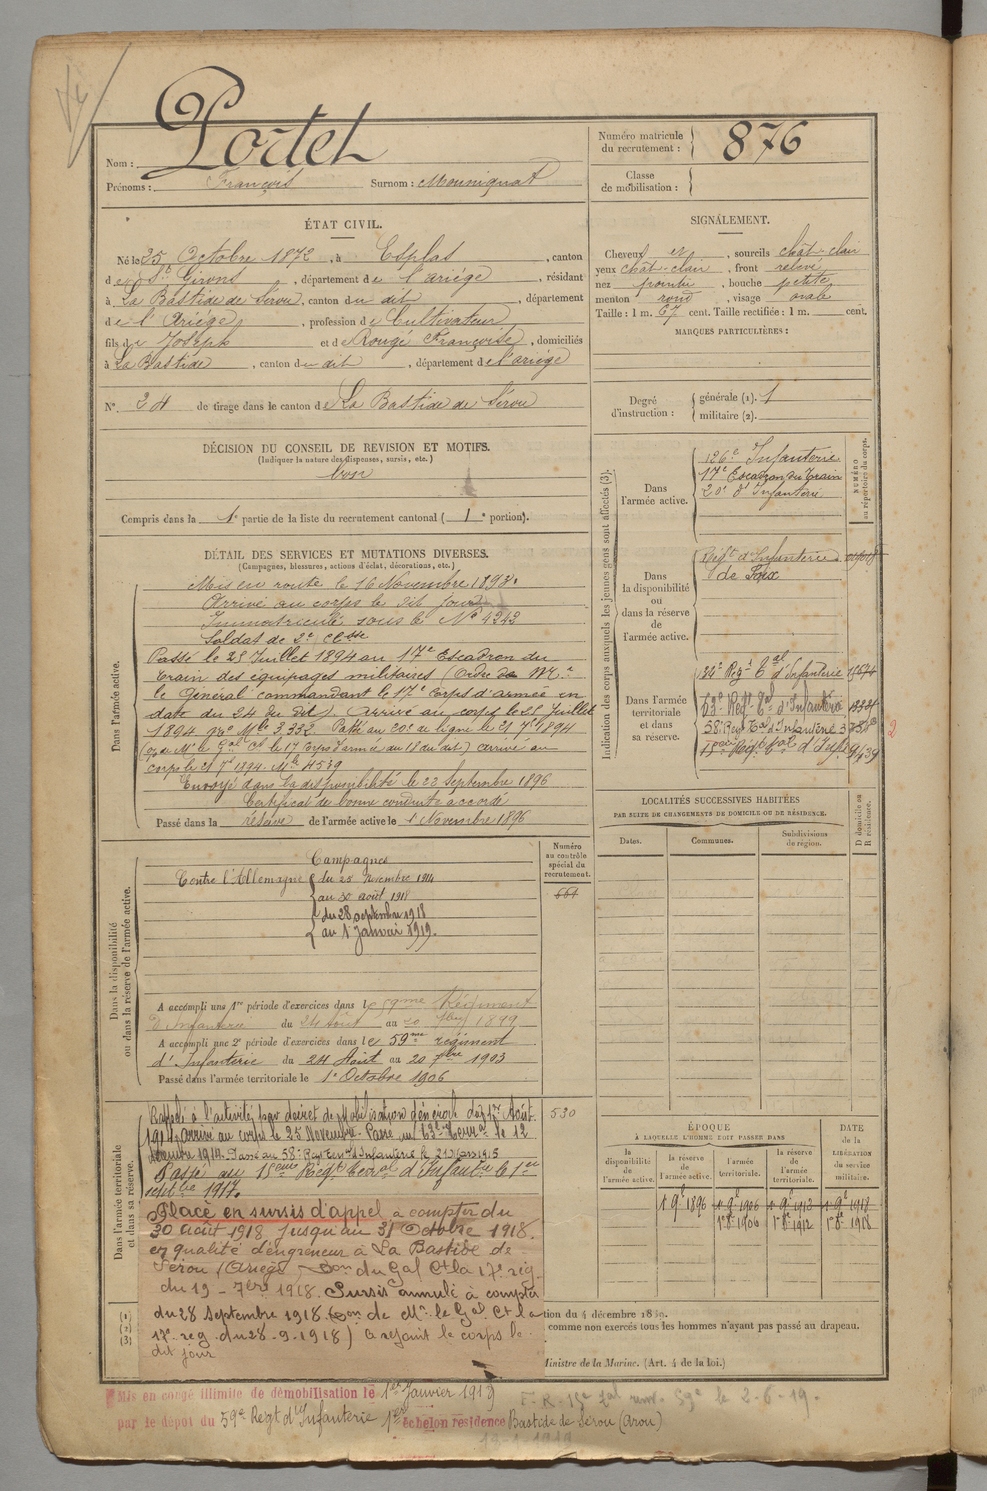 Portet
Nom :
Prénoms : François Surnom : Mouniquat
Numéro matricule du recrutement : 876
Classe de mobilisation :
ÉTAT CIVIL.
Né le 25 Octobre 1872, à Esplas, canton
de St Girons, département de l'ariège, résidant
à La Bastide de Sérou, canton du dit, département
de l'Ariège, profession de Cultivateur
fils de Joseph et de Rouge Françoise, domiciliés
à La Bastide, canton du dit, département de l'ariège
N° 24 de tirage dans le canton de La Bastide de Sérou
SIGNALEMENT.
Cheveux , sourcils chât-clair
yeux chât-clair, front relevé
nez pointu, bouche petite
menton rond, visage ovale
Taille : 1 m. 67 cent. Taille rectifiée : 1 m. cent.
MARQUES PARTICULIÈRES :
Degré d'instruction : générale (1). 1
militaire (2).
DÉCISION DU CONSEIL DE REVISION ET MOTIFS.
(Indiquer la nature des dispenses, sursis, etc.)
bon
Compris dans la 1e partie de la liste du recrutement cantonal ( 1e portion).
DÉTAIL DES SERVICES ET MUTATIONS DIVERSES.
(Campagnes, blessures, actions d'éclat, décorations, etc.)
Dans l'armée active.
Mis en route le 16 Novembre 1893.
Arrivé au corps le dit jour
Immatriculé sous le N° 4343
Soldat de 2e Classe
Passé le 25 Juillet 1894 au 17e Escadron du
train des équipages militaires (Ordre de Mr
le Général commandant le 17e Corps d'armée en
date du 24 du dit). Arrivé au corps le 25 Juillet
1894 Mle 3.332 Passé au 20e de ligne le 21 7bre 1894
le 17 Corps d'armée du 18 du dit) arrivé au
corps le 21 7bre 1894. Mle 4539
Envoyé dans la disponibilité le 22 Septembre 1896
Certificat de bonne conduite accordé
Passé dans la réserve de l'armée active le 1 Novembre 1896
Indication des corps auxquels les jeunes gens sont affectés (3).
NUMÉRO au répertoire du corps.
Dans l'armée active.
126e Infanterie
17e Escadron du Train
20e d'Infanterie
Dans la disponibilité ou dans la réserve de l'armée active.
Régt d'Infanterie
de Foix
Dans l'armée territoriale et dans sa réserve.
134e Régt Tal d'Infanterie
63e Régt Tal d'Infanterie
58e Régt Tal d'Infanterie
15e Régt Tal d'Infie
2
LOCALITÉS SUCCESSIVES HABITÉES
PAR SUITE DE CHANGEMENTS DE DOMICILE OU DE RÉSIDENCE.
Dates. Communes. Subdivisions de région. D domicile ou R résidence.
Dans la disponibilité ou dans la réserve de l'armée active.
Numéro au contrôle spécial du recrutement.
661
Campagnes
Contre l'Allemagne du 25 Novembre 1914
au 30 août 1918
du 28 septembre 1918
au 1 Janvier 1919.
A accompli une 1re période d'exercices dans le 59me Régiment
d'Infanterie du 24 Août au 20 7bre 1899
A accompli une 2e période d'exercices dans le 59me régiment
d'Infanterie du 24 Août au 20 7bre 1903
Passé dans l'armée territoriale le 1e Octobre 1906
Dans l'armée territoriale et dans sa réserve.
Rappelé à l'activité par décret de Mobilisation Générale du 1er Août
1914 arrivé au corps le 25 Novembre. Passé au 63e Terral le 12
décembre 1914. Passé au 58e Rgt Terral d'Infanterie le 21 Mars 1915
Passé au 15eme Régt Terral d'Infantie le 1er
septbre 1917.
530
Placé en sursis d'appel à compter du
30 août 1918 jusqu'au 31 Octobre 1918
en qualité d'engreneur à La Bastide de
Sérou (Ariège) Don du Gal Ct la 17e rég
du 19-7bre 1918. Sursis annulé à compter
du 28 Septembre 1918. (Don de Mr le Gal Ct la
17e rég du 28-9-1918) a rejoint le corps le
dit jour
ÉPOQUE
À LAQUELLE L'HOMME DOIT PASSER DANS
la disponibilité de l'armée active. la réserve de l'armée active. l'armée territoriale. la réserve de l'armée territoriale.
DATE de la LIBÉRATION du service militaire.
1 9e 1896 1 9e 1906 1 9e 1912 1 9e 1918
1 8e 1906 1 8e 1912 1 8e 1918
(1)
(2)
(3)
tion du 4 décembre 1889.
comme non exercés tous les hommes n'ayant pas passé au drapeau.
Ministre de la Marine. (Art. 4 de la loi.)
Mis en congé illimité de démobilisation le 1er Janvier 1919
par le dépôt du 59e Régt d'Infanterie 1er échelon résidence Bastide de Sérou (Arou)
59e le 2-6-19.